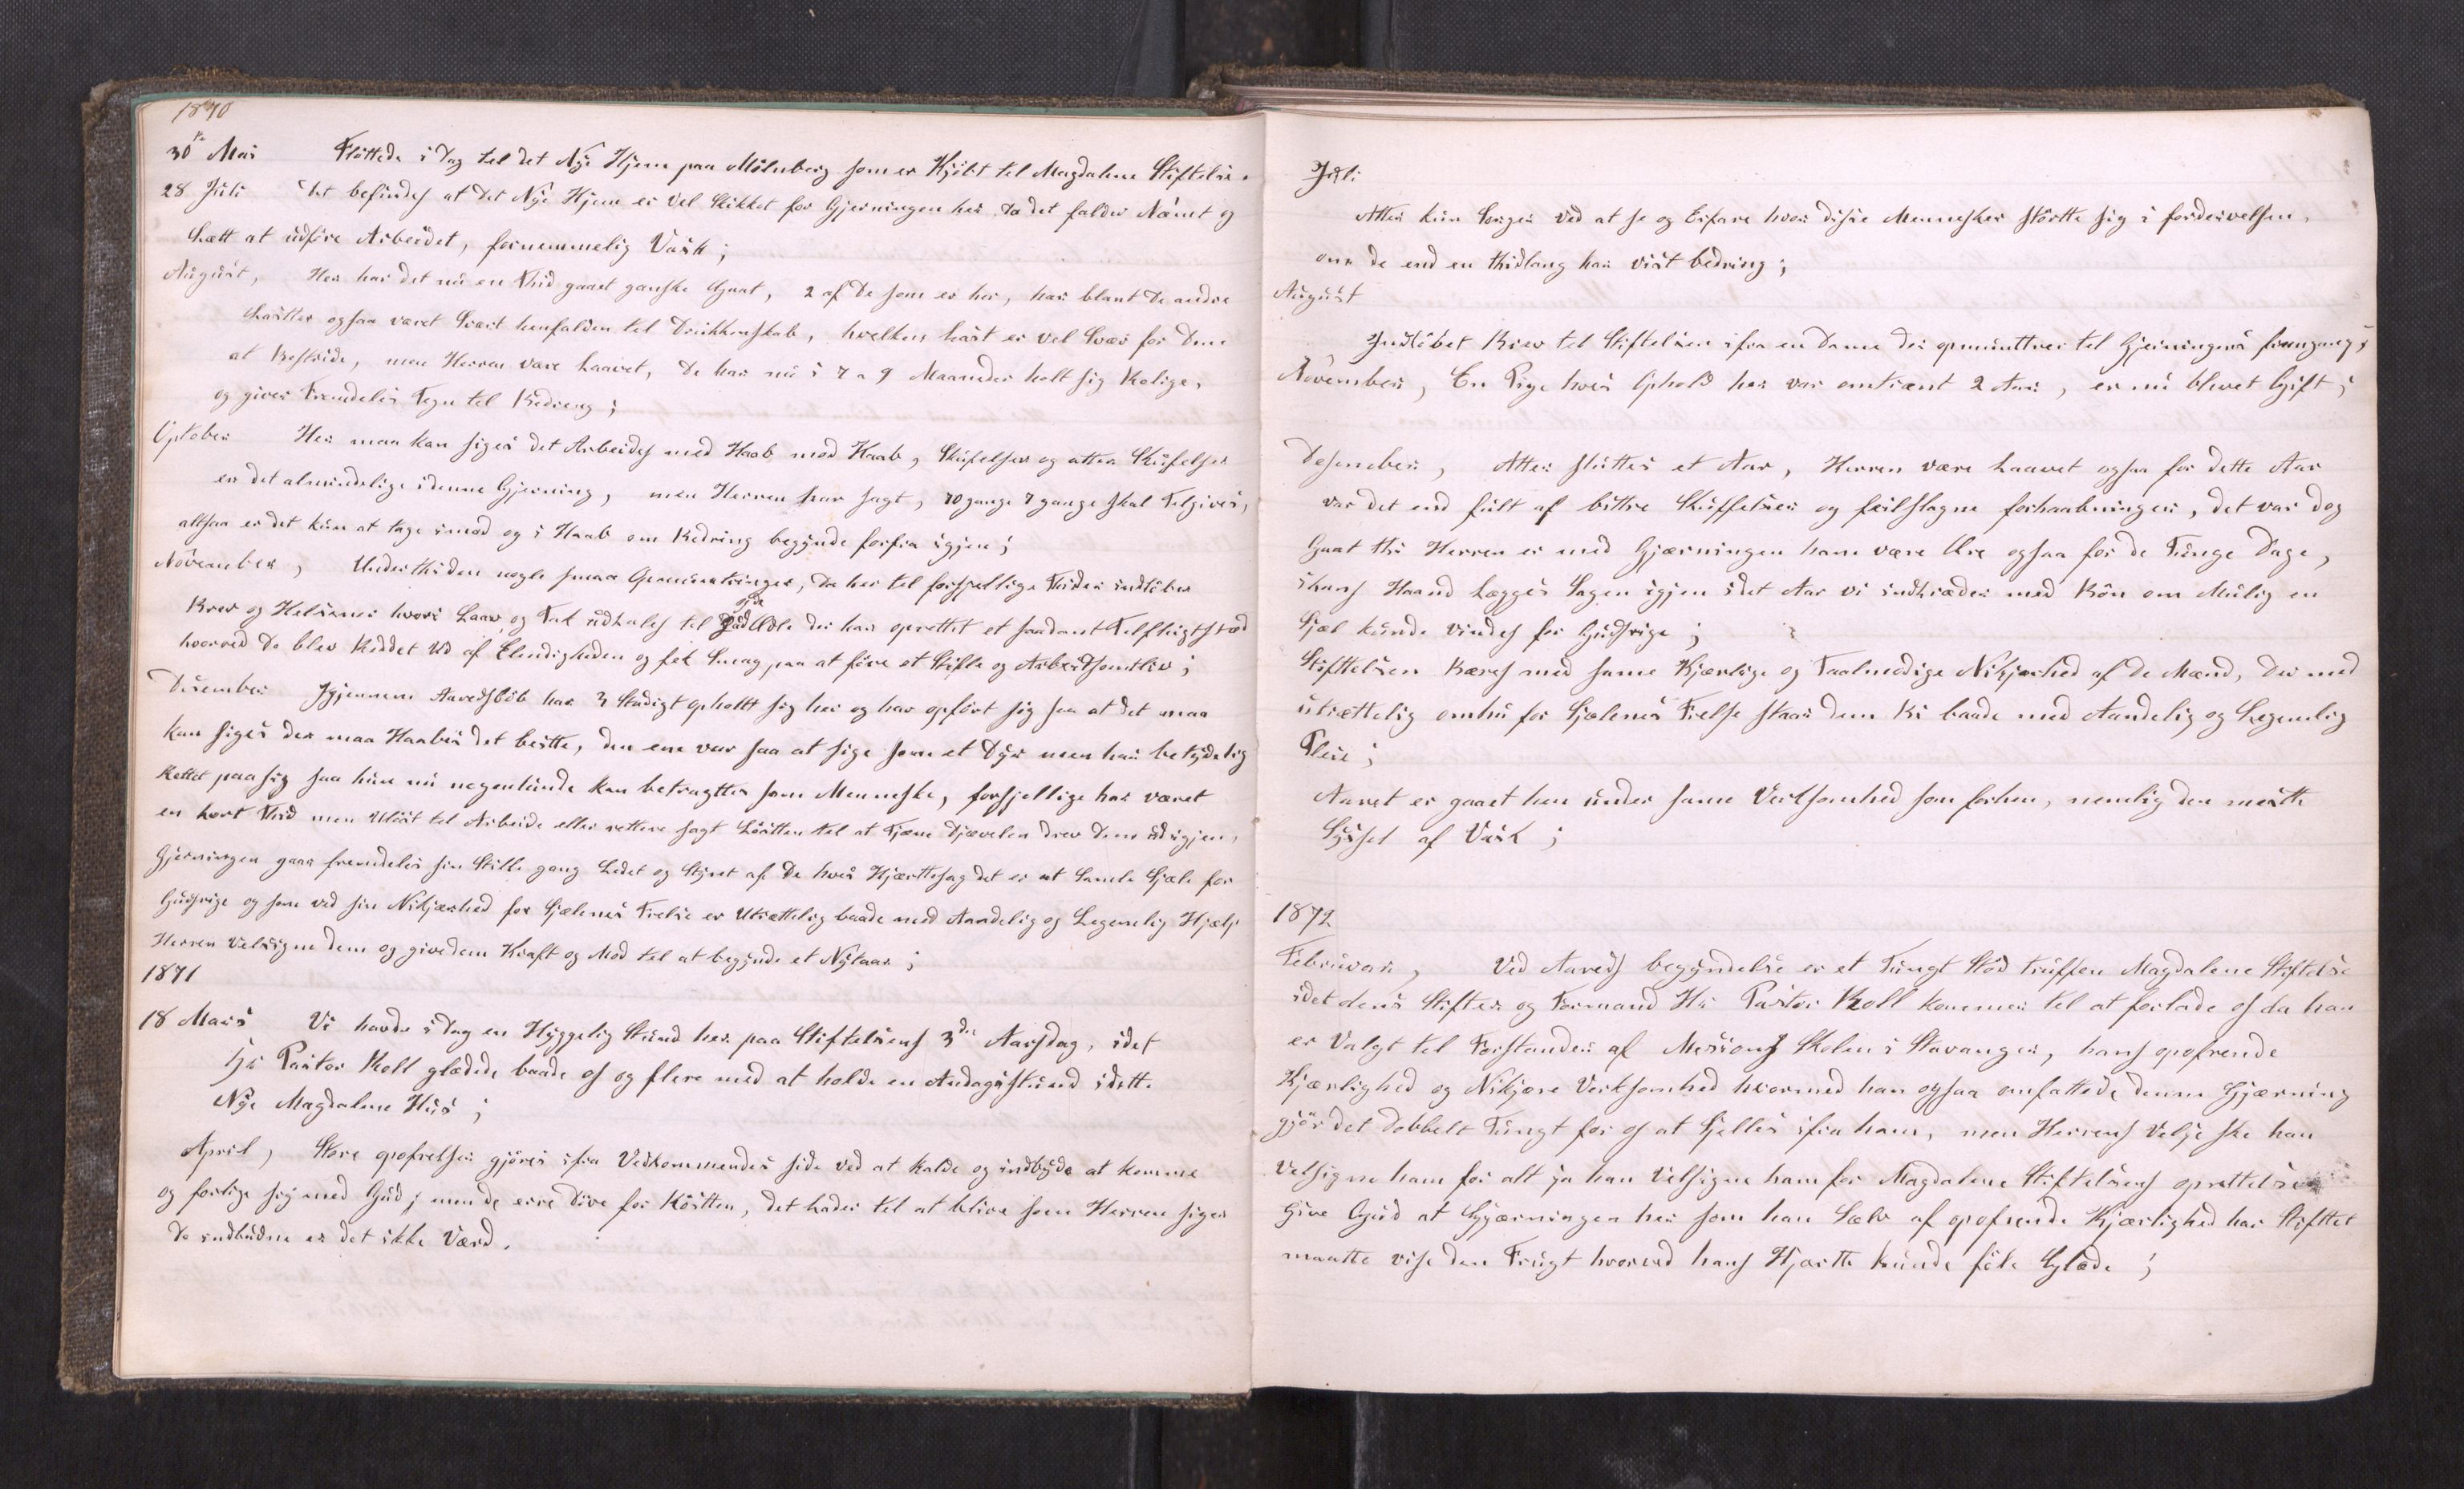 1870
30te Mai Fløttede i Dag til det Nye Hjem paa Mølnberg som er Kjøbt til Magdalene Stiftelse.
28 Juli Det befindes at det Nye Hjem er Vel Skikket for Gjerningen her, da det falder Næmt og
Lætt at udføre Arbeidet, fornemmelig Vask;
August, Her har det nu en Thid gaaet ganske Gaat, 2 af De som er her, har blant De andre
Laster ogsaa været Svært henfalden til Drukkenskab, hvelken Last er vel Svær for Dem
at Bestride, men Herren være Laavet, De har nu i 7 a 9 Maaneder holt sig Rolige,
og giver Fremdeles Tegn til Bedreng;
Oktober Her maa kan siges det Arbeides med Haab mod Haab, Skufelser og atter Skufelser
er det almindelige i denne Gjerning, men Herren har sagt, 70 gange 7 gange skal Telgives,
altsaa er det kun at tage imod og i Haab om Bedring begynde forfra igjen;
November, Underthiden nogle smaa Opmuntringer, da her til forskjellige Thider indløber
Brev og Helsener hvori Laav og Tak udtales til Gud og de Ædle der har oprettet et saadant Telflugtsted
hvorved De blev Reddet Ud af Elendigheden og fek Smag paa at føre et Stille og Arbeidsomtliv;
Desember Igjennem Aaredsløb har 3 Stadigt opholtt sig her og har opført sig saa at det maa
kan siges der maa Haabes det beste, den ene var saa at sige som et Dyr men har betydelig
Rettet paa sig saa hun nu nogenlunde kan betragttes som Menneske, forsjellige har været
en kort Thid men Ulöst til Arbeide eller rettere sagt Lösten til at Tjæne Djævelen drev Dem ud igjen,
Gjerningen gaar fremdeles sin Stille gang Ledet og Styret af De hves Hjærttesag det er at Samle Sjæle for
Gudsrige og som ved sin Nikjærhed for Sjælenes Frelse er Utrættelig baade med Aandelig og Legemelig Hjælp
Herren Velsigne dem og give dem Kraft og Mod til at begynde et Nytaar;
1871
18 Mars Vi havde i Dag en Hyggelig Stund her paa Stiftelsens 3die Aarsdag, idet
Hr Pastor Roll glædede baade os og flere med at holde en Andagtstund i dette
Nye Magdalene Hus;
April, Store opofrelser gjøres ifra Vedkommendes side ved at kalde og indbyde at komme
og forlige sig med Gud; men de erre Døve for Røsten, det lader til at blive som Herren siger
De indbudne er det ikke Værd.
Juli
Atter kun Sorger ved at se og Erfare hvor disse Mennesker störtte sig i fordervelsen,
om de end en Thidlang har vist bedring;
August
Indløbet Brev til Stiftelsen ifra en Dame der opmunttrer til Gjerningens fremgang;
November, En Pige hvis Ophold her var omtrænt 2 Aar, er nu blevet Gift;
Desember, Atter sluttes et Aar, Herren være Laavet ogsaa for dette Aar
var det end fult af bittre Skuffelser og feilslagne forhaabninger, det var dog
Gaat thi Herren er med Gjærningen ham være Ære ogsaa for de Tunge Dage,
i hans Haand Lægges Sagen igjen i det Aar vi indtræder med Bøn om Mulig en
Sjæl kunde vindes for Gudsrige;
Stiftelsen Bæres med same Kjærlige og Taalmodige Nikjærhed af De Mænd, der med
utrættelig omhu for Sjælenes Frelse staar dem Bi baade med Aandelig og Legemlig
Pleie;
Aaret er gaaet hen under same Verksomhed som forhen, nemlig den meste
Syssel af Vask;
1872
Februar, Ved Aareds begyndelse er et Tungt Stød truffen Magdalene Stiftelse
idet dens Stifter og Formand Hr Pastor Roll kommer til at forlade os da han
er Valgt til Forstander af Mesions Skolen i Stavanger, hans opofrende
Kjærlighed og Nikjære Verksomhed hvormed han ogsaa omfattede denne Gjærning
gjør det dobbelt Tungt for os at Sjelles ifra ham, men Herrens Velje ske han
Velsigne ham for alt ja han Velsigne ham for Magdalene Stiftelsens oprettelse
Give Gud at Gjærningen her som han Sælv af opofrende Kjærlighed har Stifttet
maatte vise den Frugt hvorved hans Hjærtte kunde føle Glæde;